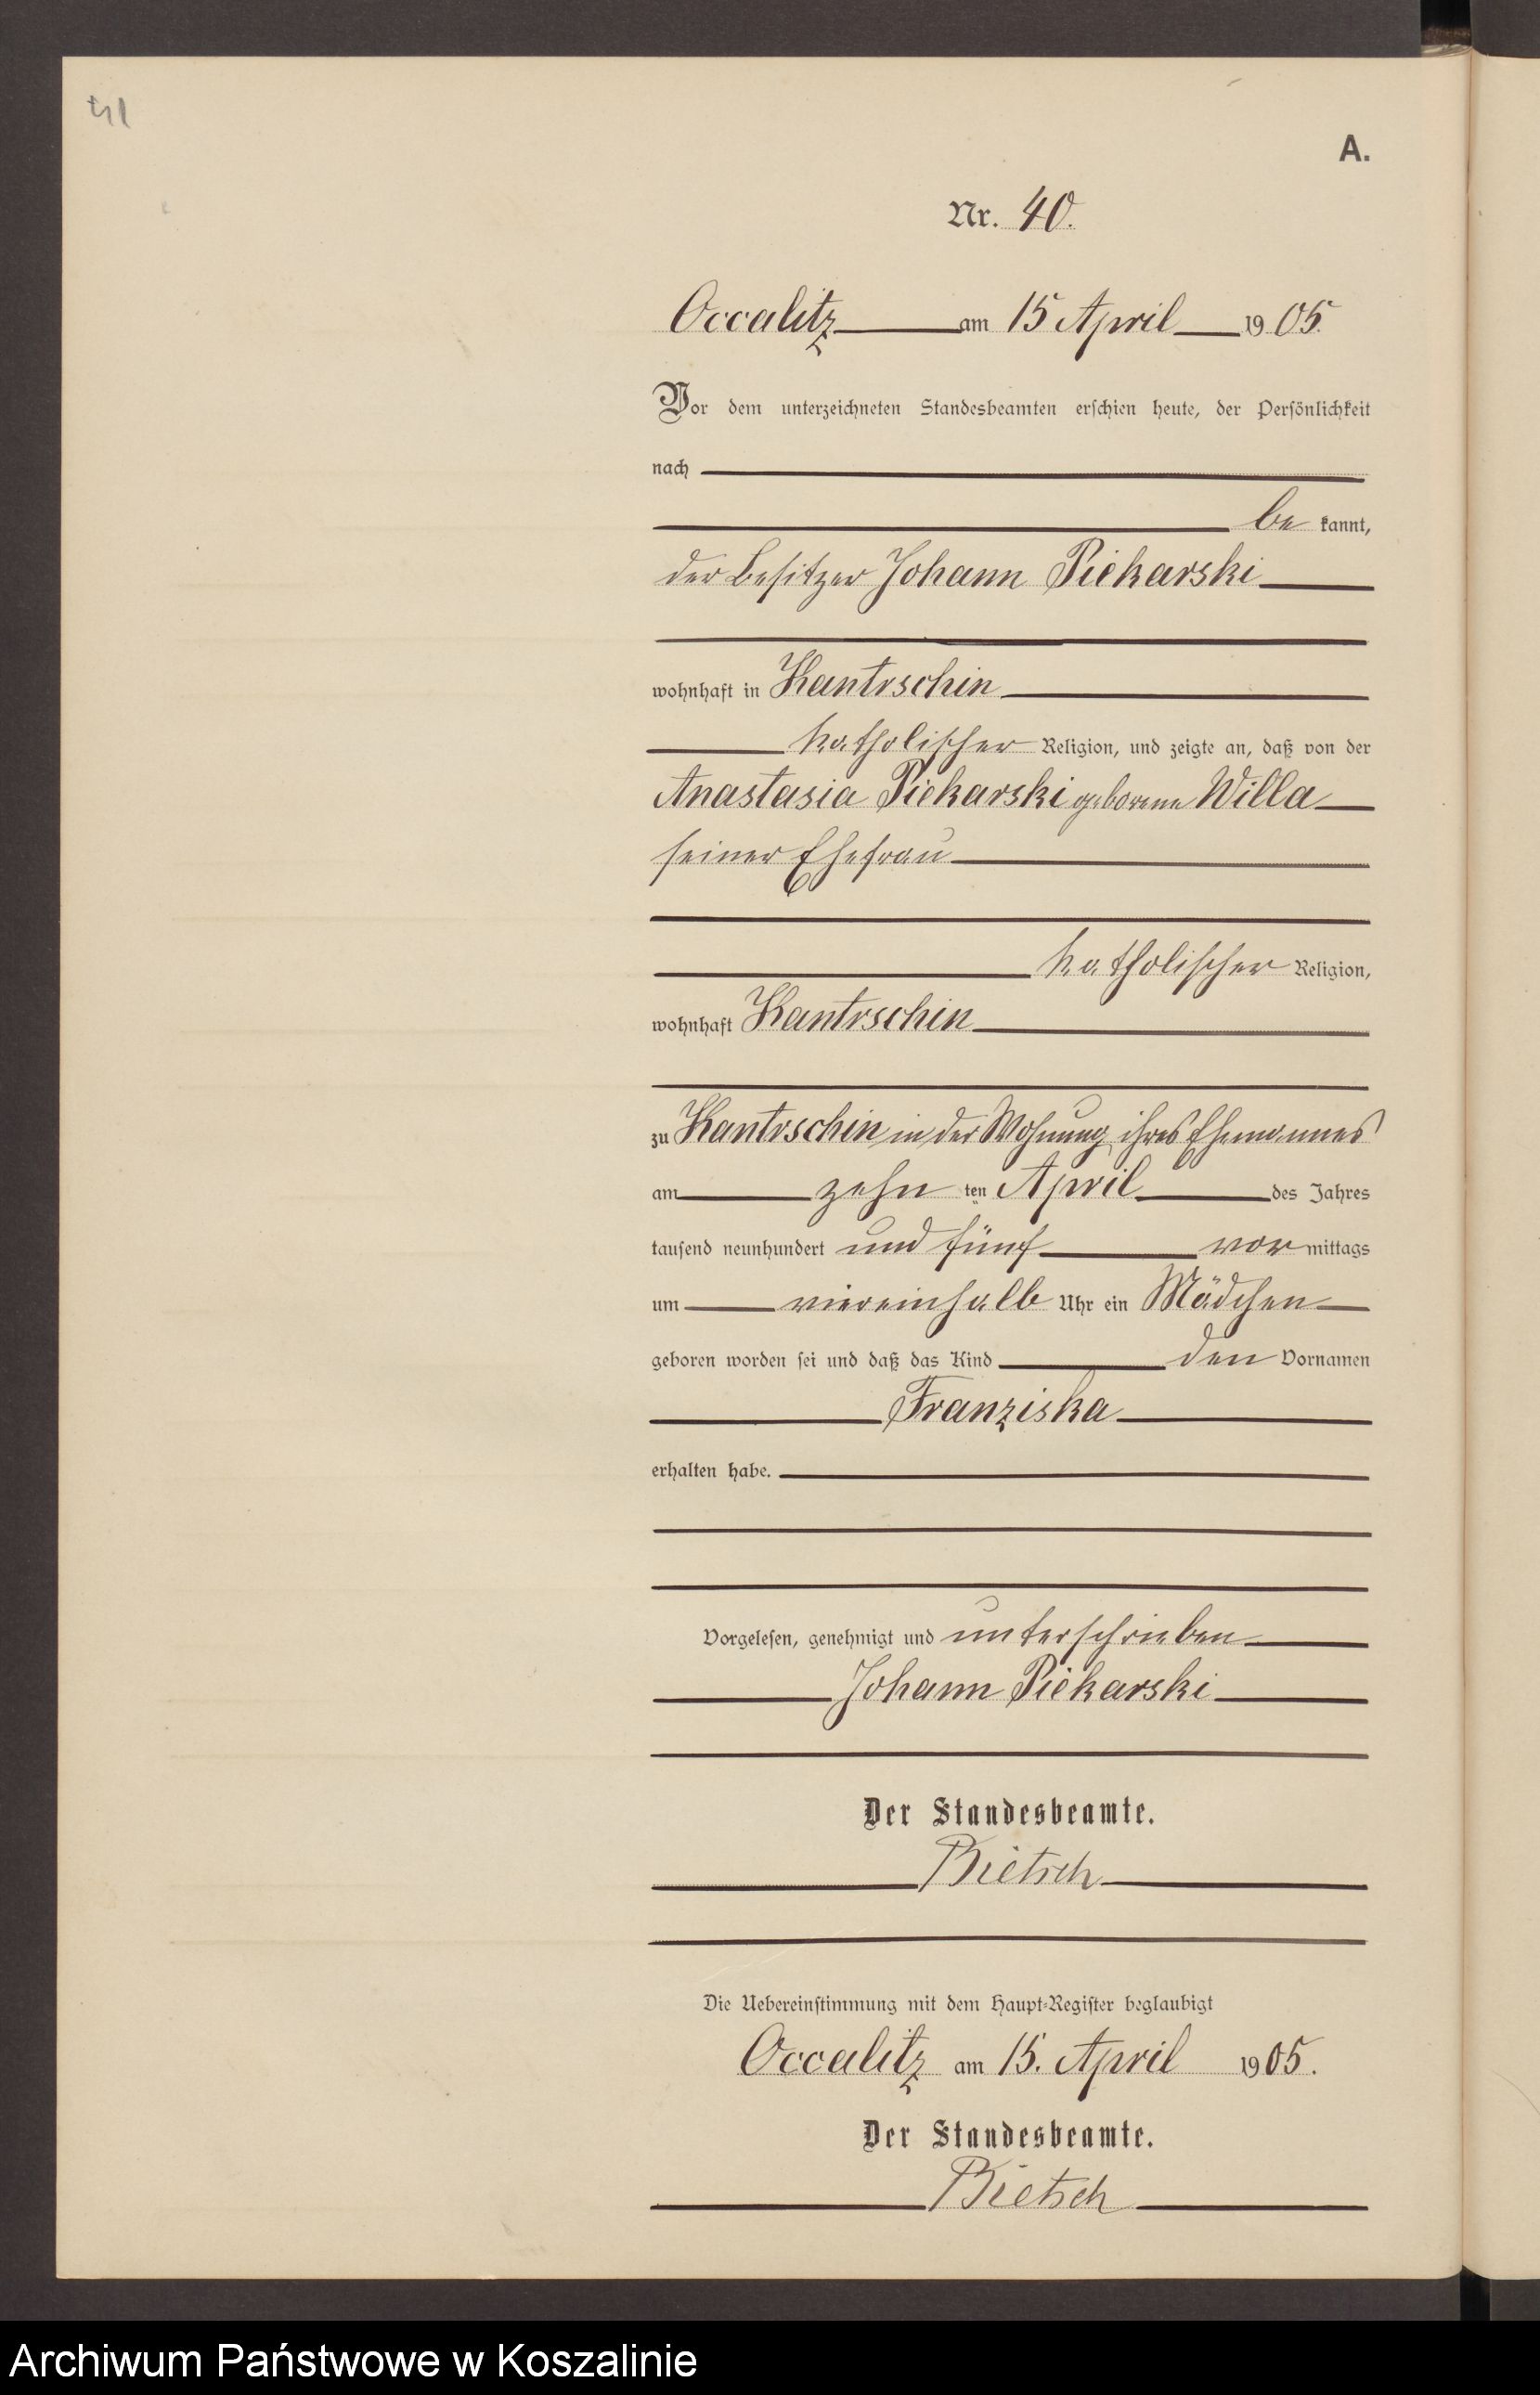 41
A.
Nr. 40.
Occalitz am 15 April 1905.
Vor dem unterzeichneten Standesbeamten erschien heute, der Persönlichkeit
nach
be kannt,
der Besitzer Johann Piekarski
wohnhaft in Kantrschin
katholischer Religion, und zeigte an, daß von der
Anastasia Piekarski geborene Willa
seiner Ehefrau
katholischer Religion,
wohnhaft Kantrschin
zu Kantrschin in der Wohnung ihres Ehemannes
am zehn ten April des Jahres
tausend neunhundert und fünf vor mittags
um viereinhalb Uhr ein Mädchen
geboren worden sei und daß das Kind den Vornamen
Franziska
erhalten habe.
Vorgelesen, genehmigt und unterschrieben
Johann Piekarski
Der Standesbeamte.
Bietsch
Die Uebereinstimmung mit dem Haupt-Register beglaubigt
Occalitz am 15. April 1905.
Der Standesbeamte.
Bietsch
Archiwum Państwowe w Koszalinie